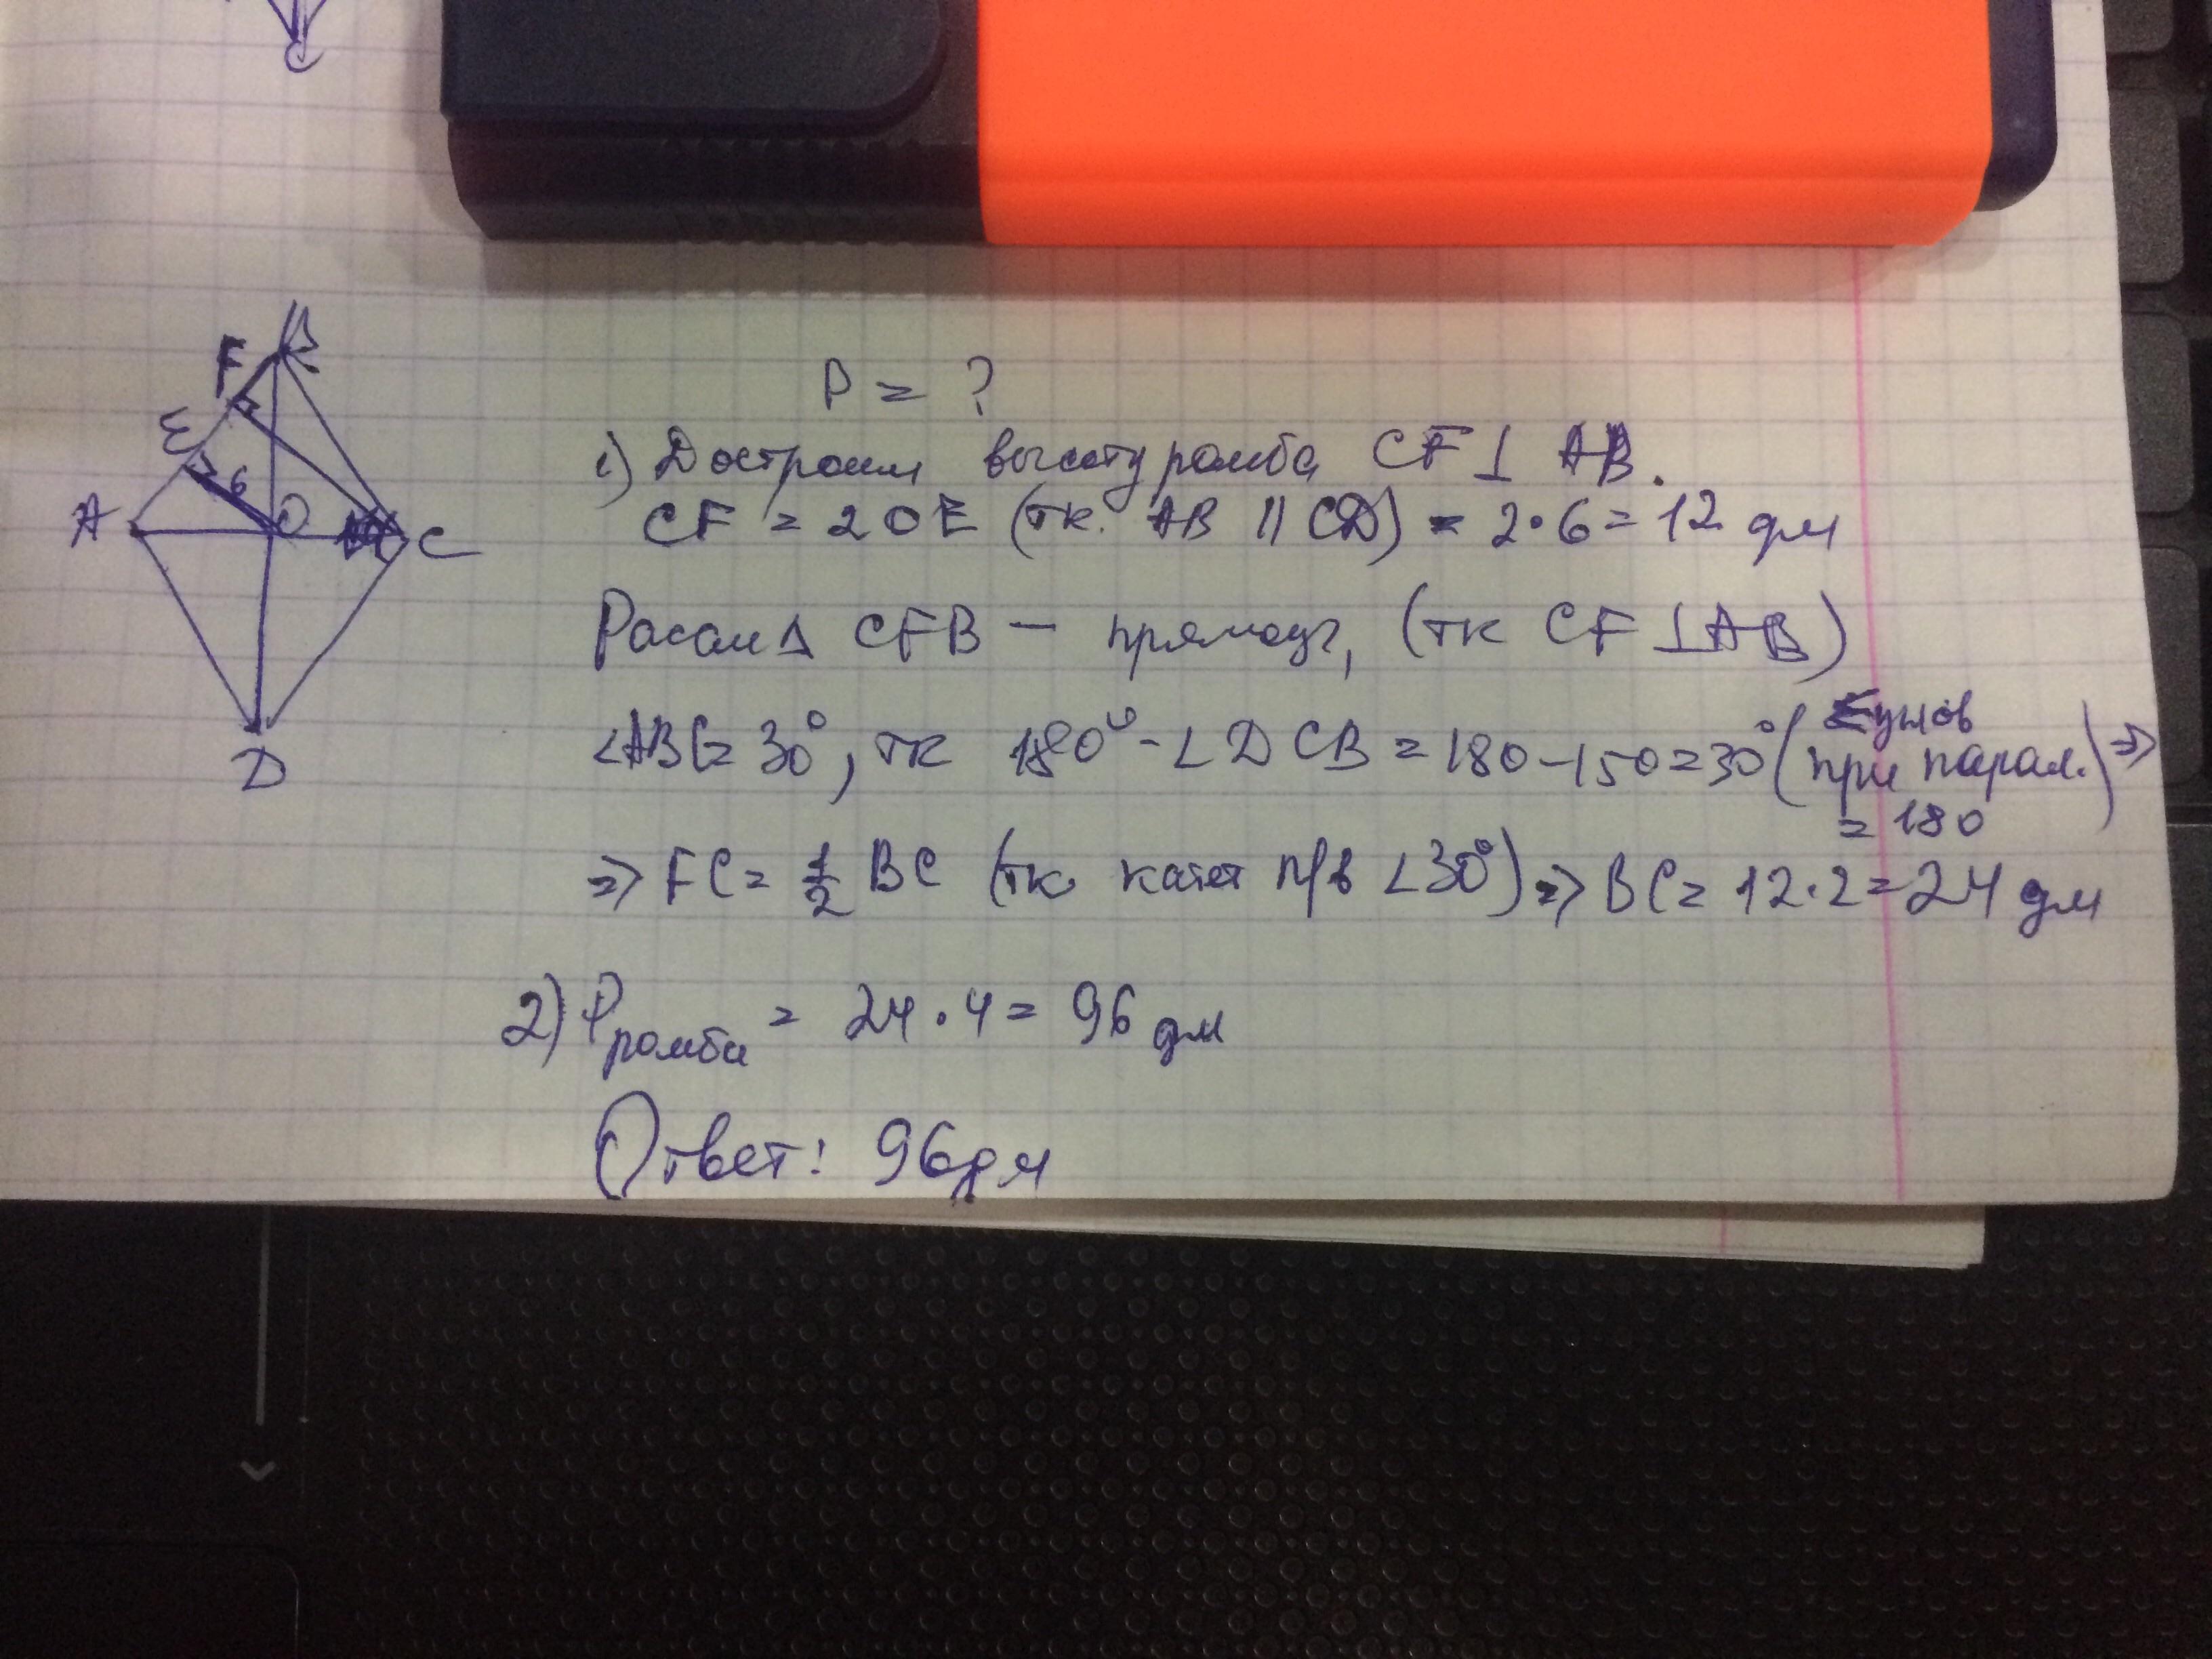 C
F B
E
6
A O C
D
P = ?
1) Достроим высоту ромба CF ⊥ AB.
CF = 2OE (тк. AB || CD) = 2·6 = 12 дм
Рассм Δ CFB — прямоуг, (тк CF ⊥ AB)
∠ABC = 30°, тк 180° - ∠DCB = 180 - 150 = 30° (Σ углов при парал. = 180) =>
=> FC = 1/2 BC (тк катет п/в ∠30°) => BC = 12·2 = 24 дм
2) Pромба = 24·4 = 96 дм
Ответ: 96 дм